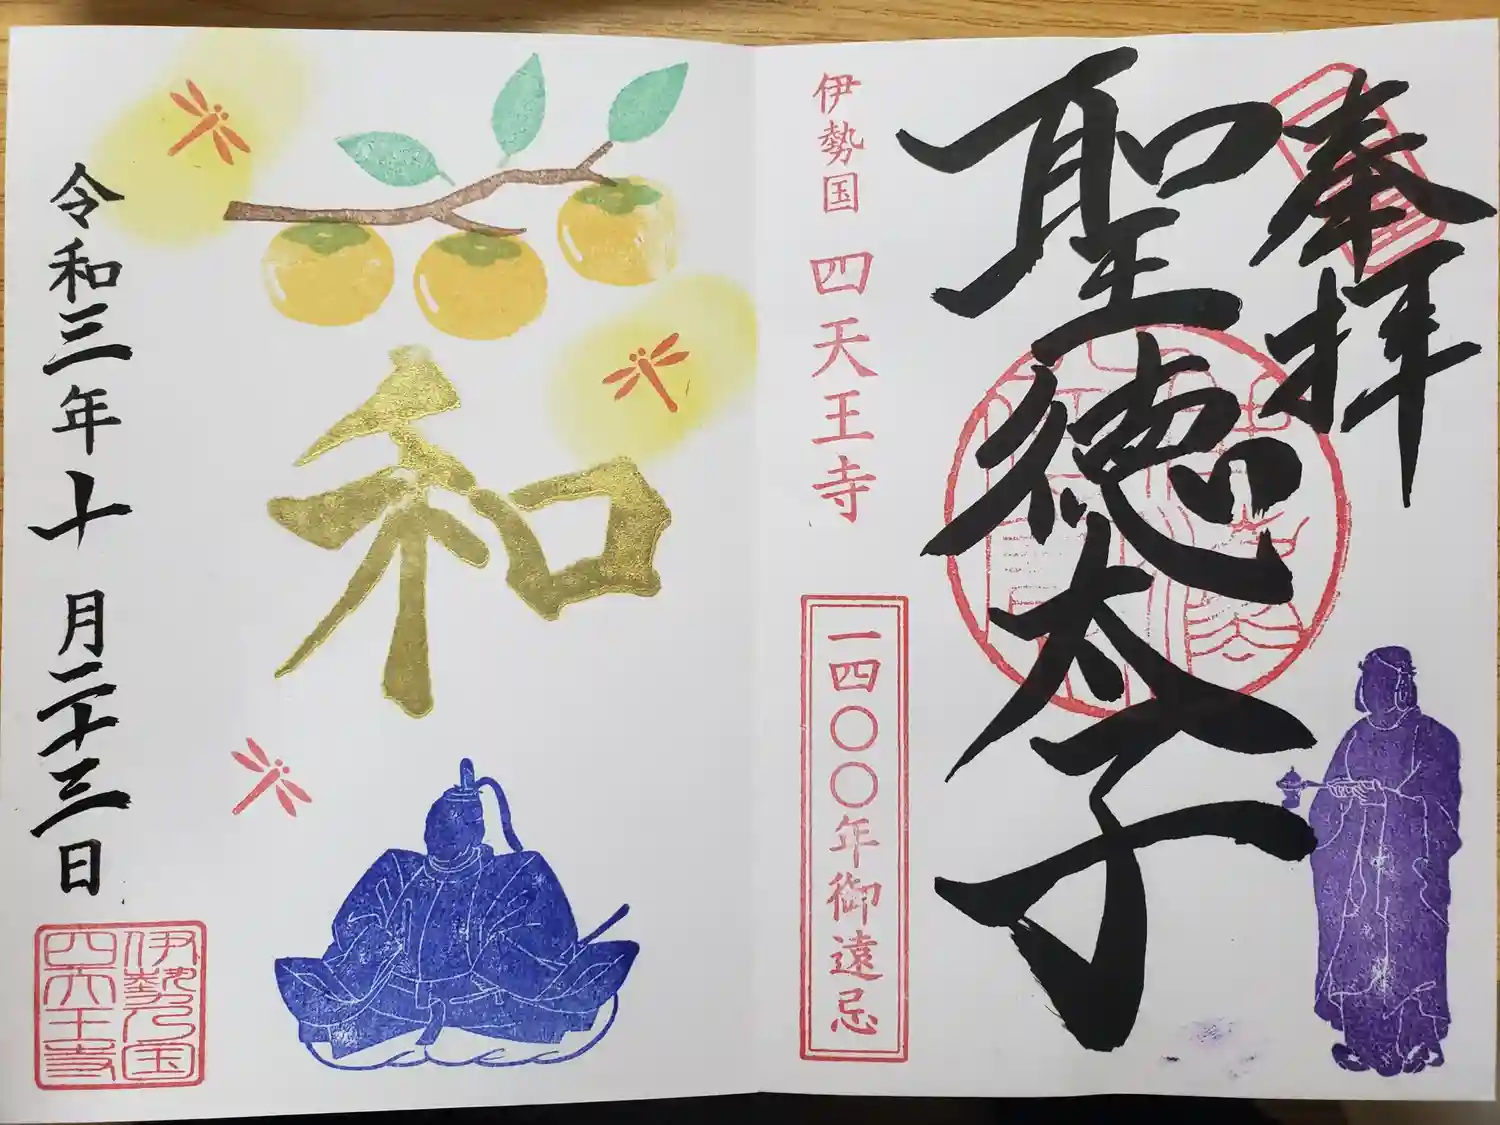 奉拝
聖徳太子
伊勢国 四天王寺
一四〇〇年御遠忌
和
令和三年十月二十三日
伊勢乃国
四天王寺